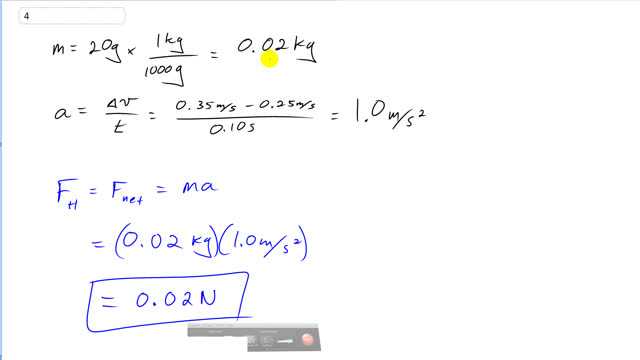 4
m = 20g × 1kg/1000g = 0.02 kg
a = Δv/t = 0.35 m/s − 0.25 m/s/0.10s = 1.0 m/s²
F_H = F_net = ma
= (0.02 kg)(1.0 m/s²)
= 0.02 N